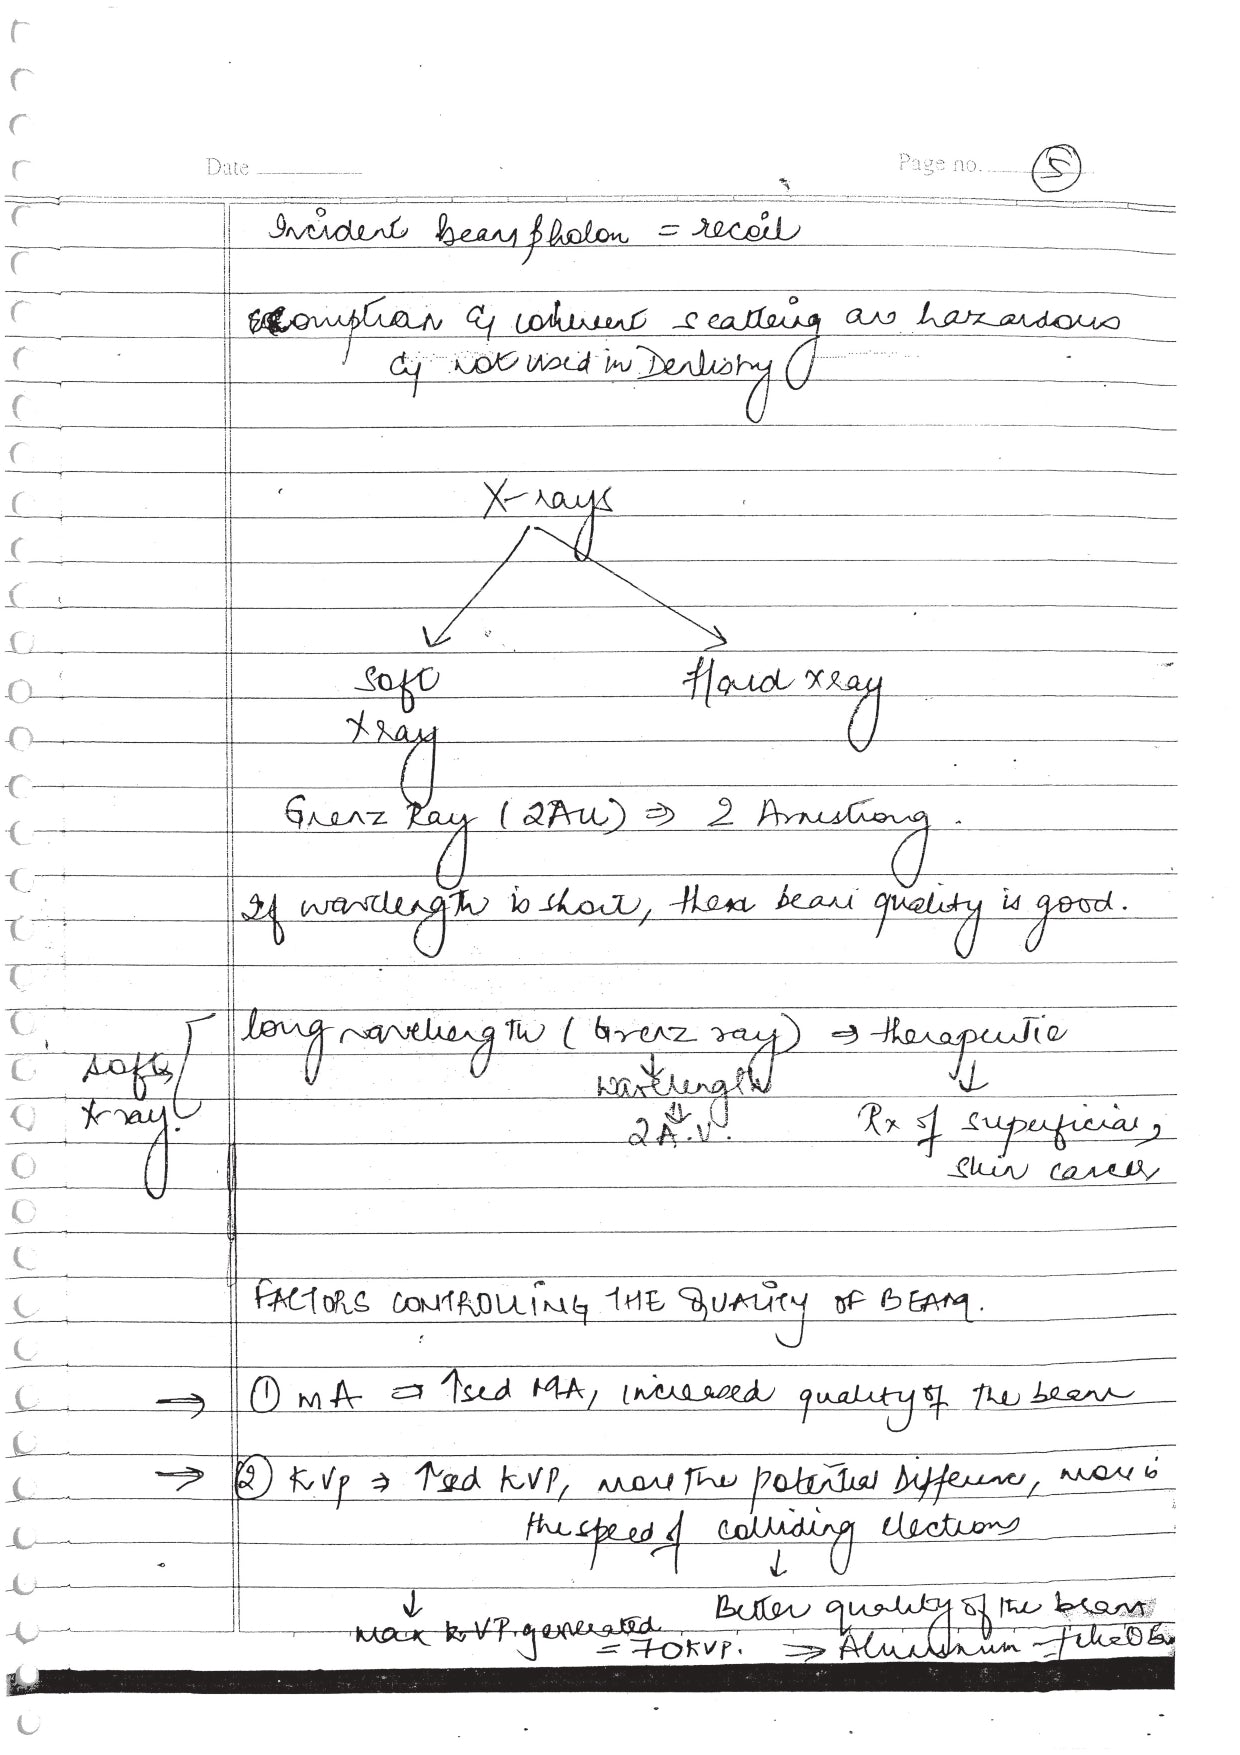 Date
Page no. 5
Incident beam photon = recoil
compton & coherent scattering are hazardous
& not used in Dentistry
X-rays
Soft Hard xray
Xray
Grenz Ray (2AU) ⇒ 2 Armstrong.
If wavelength is short, then beam quality is good.
long wavelength (Grenz ray) ⇒ therapeutic
soft
X-ray.
wavelength
2 A.V.
Rx of superficial,
skin cancer
FACTORS CONTROLLING THE QUALITY OF BEAM.
→ ① mA ⇒ ↑sed MA, increased quality of the beam
→ ② KVp ⇒ ↑sed KVP, more the potential difference, more is
the speed of colliding electrons
↓
Better quality of the beam
↓
max KVP generated
= 70KVP.
⇒ Aluminium